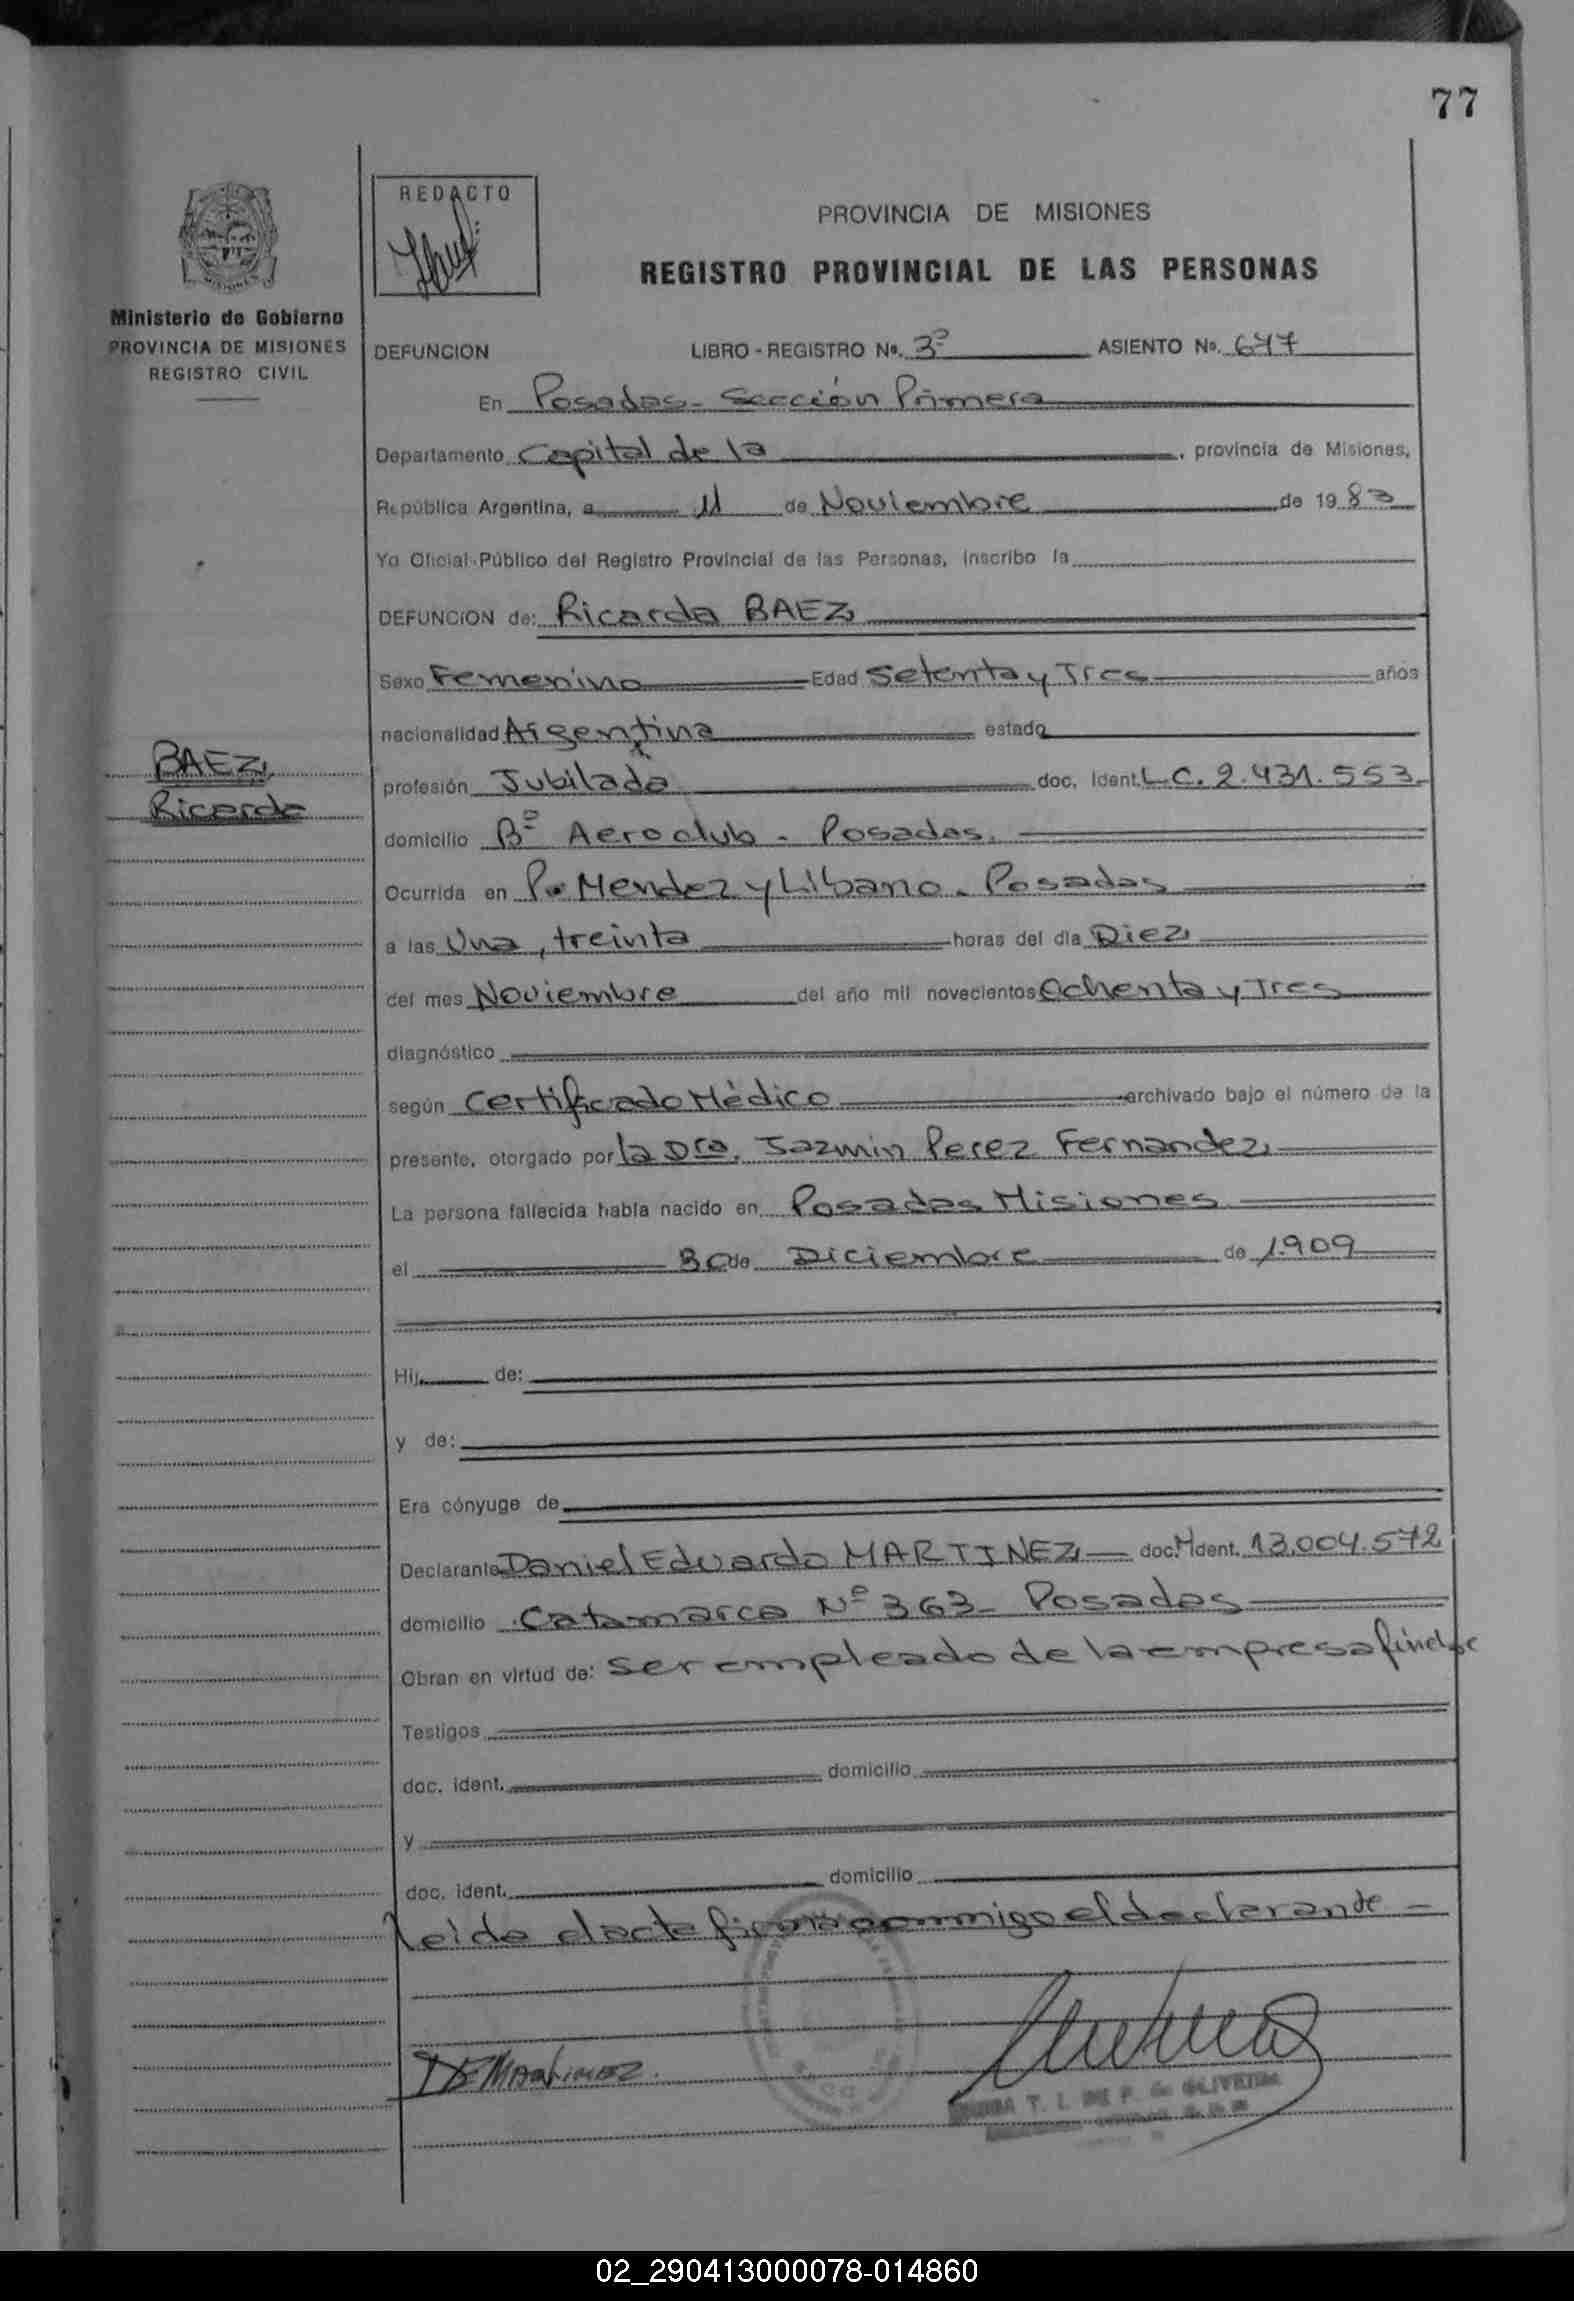 77
REDACTO
PROVINCIA DE MISIONES
REGISTRO PROVINCIAL DE LAS PERSONAS
Ministerio de Gobierno
PROVINCIA DE MISIONES
REGISTRO CIVIL
DEFUNCION LIBRO - REGISTRO No. 3º ASIENTO No. 677
En Posadas - Sección Primera
Departamento Capital de la , provincia de Misiones,
República Argentina, a 11 de Noviembre de 1983
Yo Oficial Público del Registro Provincial de las Personas, inscribo la
DEFUNCION de: Ricarda BAEZ
Sexo Femenino Edad Setenta y Tres años
nacionalidad Argentina estado
BAEZ,
Ricarda
profesión Jubilada doc. Ident. L.C. 2.431.553.
domicilio Bº Aeroclub - Posadas.
Ocurrida en P. Mendez y Libano - Posadas
a las Una, treinta horas del día Diez
del mes Noviembre del año mil novecientos Ochenta y Tres
diagnóstico
según Certificado Médico archivado bajo el número de la
presente, otorgado por la Dra. Jazmin Perez Fernandez
La persona fallecida había nacido en Posadas Misiones
el 30 de Diciembre de 1.909
Hij de:
y de:
Era cónyuge de
Declarante Daniel Eduardo MARTINEZ doc. Ident. 13.004.572
domicilio Catamarca Nº 363 - Posadas
Obran en virtud de: ser empleado de la empresa
Testigos
doc. ident. domicilio
y
doc. ident. domicilio
Leida el acta firma conmigo el declarante -
DE MARTINEZ.
T. I. DE F. de OLIVEIRA
02_290413000078-014860